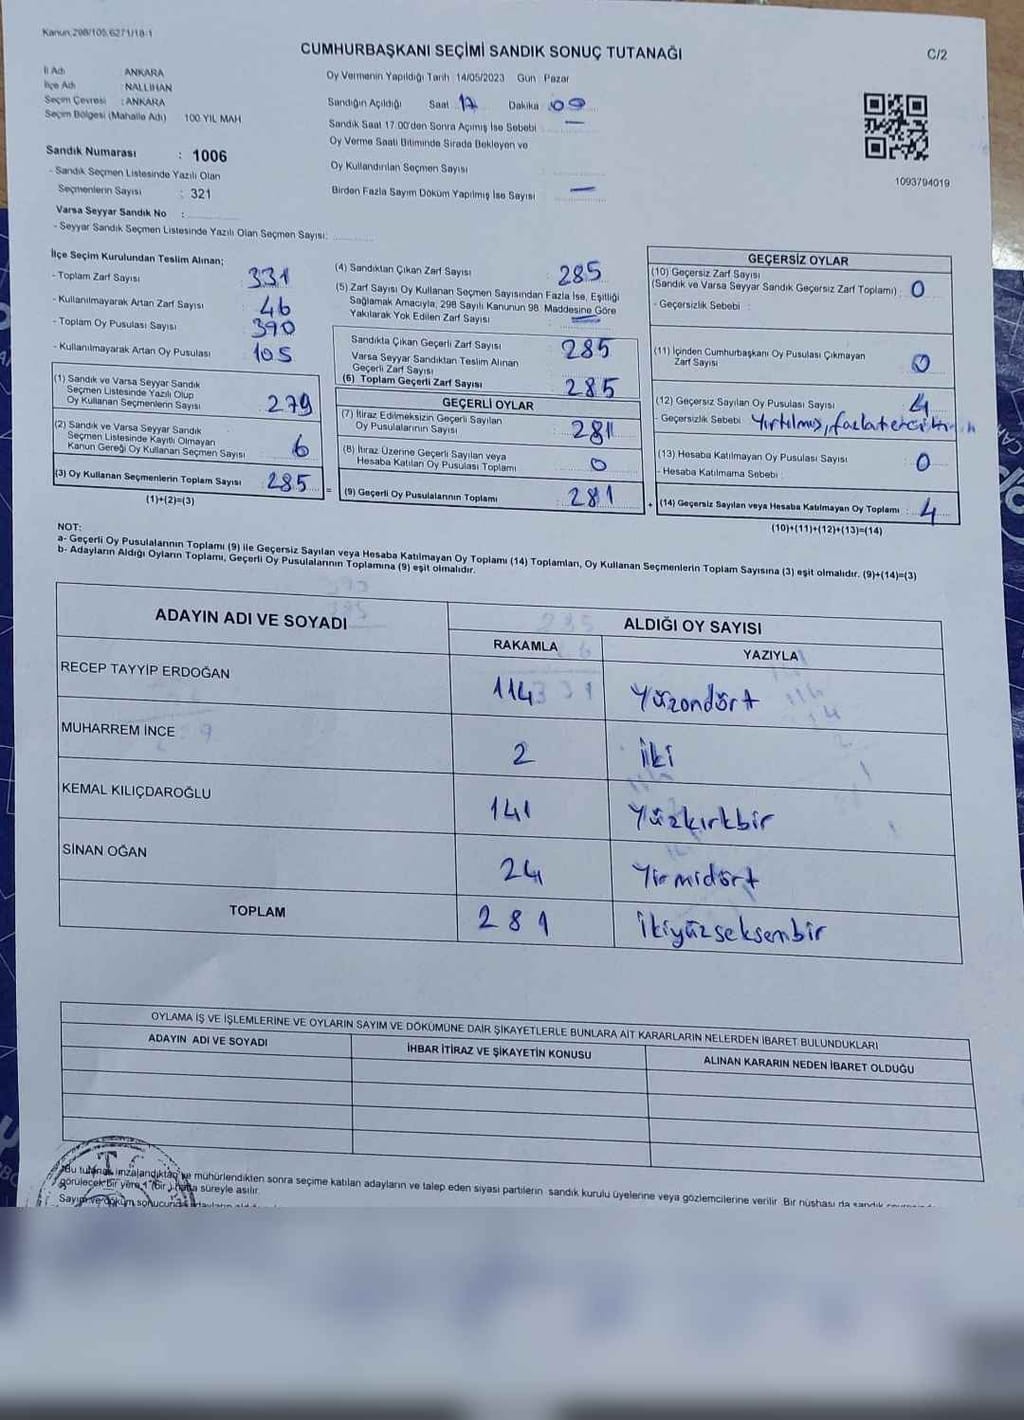 Kanun:298/105,6271/18-1
CUMHURBAŞKANI SEÇİMİ SANDIK SONUÇ TUTANAĞI
C/2
İl Adı ANKARA
İlçe Adı : NALLIHAN
Seçim Çevresi : ANKARA
Seçim Bölgesi (Mahalle Adı) 100 YIL MAH
Sandık Numarası : 1006
- Sandık Seçmen Listesinde Yazılı Olan
Seçmenlerin Sayısı : 321
Varsa Seyyar Sandık No :
- Seyyar Sandık Seçmen Listesinde Yazılı Olan Seçmen Sayısı:
Oy Vermenin Yapıldığı Tarih 14/05/2023 Gün : Pazar
Sandığın Açıldığı Saat 17 Dakika 09
Sandık Saat 17:00'den Sonra Açımış İse Sebebi —
Oy Verme Saati Bitiminde Sırada Bekleyen ve
Oy Kullandırılan Seçmen Sayısı
Birden Fazla Sayım Döküm Yapılmış İse Sayısı —
1093794019
İlçe Seçim Kurulundan Teslim Alınan;
- Toplam Zarf Sayısı 331
- Kullanılmayarak Artan Zarf Sayısı : 46
- Toplam Oy Pusulası Sayısı 390
- Kullanılmayarak Artan Oy Pusulası 105
(1) Sandık ve Varsa Seyyar Sandık
Seçmen Listesinde Yazılı Olup
Oy Kullanan Seçmenlerin Sayısı 279
(2) Sandık ve Varsa Seyyar Sandık
Seçmen Listesinde Kayıtlı Olmayan
Kanun Gereği Oy Kullanan Seçmen Sayısı 6
(3) Oy Kullanan Seçmenlerin Toplam Sayısı : 285
(1)+(2)=(3)
(4) Sandıktan Çıkan Zarf Sayısı 285
(5) Zarf Sayısı Oy Kullanan Seçmen Sayısından Fazla İse, Eşitliği
Sağlamak Amacıyla, 298 Sayılı Kanunun 98. Maddesine Göre
Yakılarak Yok Edilen Zarf Sayısı —
Sandıkta Çıkan Geçerli Zarf Sayısı 285
Varsa Seyyar Sandıktan Teslim Alınan
Geçerli Zarf Sayısı
(6) Toplam Geçerli Zarf Sayısı 285
GEÇERLİ OYLAR
(7) İtiraz Edilmeksizin Geçerli Sayılan
Oy Pusulalarının Sayısı 281
(8) İtiraz Üzerine Geçerli Sayılan veya
Hesaba Katılan Oy Pusulası Toplamı 0
= (9) Geçerli Oy Pusulalarının Toplamı 281
GEÇERSİZ OYLAR
(10) Geçersiz Zarf Sayısı
(Sandık ve Varsa Seyyar Sandık Geçersiz Zarf Toplamı) : 0
- Geçersizlik Sebebi :
(11) İçinden Cumhurbaşkanı Oy Pusulası Çıkmayan
Zarf Sayısı 0
(12) Geçersiz Sayılan Oy Pusulası Sayısı 4
- Geçersizlik Sebebi Yırtılmış, fazla tercih
(13) Hesaba Katılmayan Oy Pusulası Sayısı 0
- Hesaba Katılmama Sebebi :
+ (14) Geçersiz Sayılan veya Hesaba Katılmayan Oy Toplamı : 4
(10)+(11)+(12)+(13)=(14)
NOT:
a- Geçerli Oy Pusulalarının Toplamı (9) ile Geçersiz Sayılan veya Hesaba Katılmayan Oy Toplamı (14) Toplamları, Oy Kullanan Seçmenlerin Toplam Sayısına (3) eşit olmalıdır. (9)+(14)=(3)
b- Adayların Aldığı Oyların Toplamı, Geçerli Oy Pusulalarının Toplamına (9) eşit olmalıdır.
ADAYIN ADI VE SOYADI
ALDIĞI OY SAYISI
RAKAMLA YAZIYLA
RECEP TAYYİP ERDOĞAN 114 Yüzondört
MUHARREM İNCE 2 İki
KEMAL KILIÇDAROĞLU 141 Yüzkırkbir
SİNAN OĞAN 24 Yirmidört
TOPLAM 281 İkiyüzseksenbir
OYLAMA İŞ VE İŞLEMLERİNE VE OYLARIN SAYIM VE DÖKÜMÜNE DAİR ŞİKAYETLERLE BUNLARA AİT KARARLARIN NELERDEN İBARET BULUNDUKLARI
ADAYIN ADI VE SOYADI İHBAR İTİRAZ VE ŞİKAYETİN KONUSU ALINAN KARARIN NEDEN İBARET OLDUĞU
Bu tutanak imzalandıktan ve mühürlendikten sonra seçime katılan adayların ve talep eden siyasi partilerin sandık kurulu üyelerine veya gözlemcilerine verilir. Bir nüshası da sandık
görülecek bir yere 1 (bir) hafta süreyle asılır.
Sayım ve döküm sonucunda